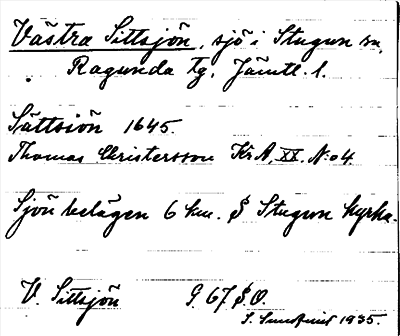 Västra Sittsjön, sjö i Stugun sn,
Ragunda tg, Jämtl. l.
Sättsiön 1645.
Thomas Christersson Kr A, XX. N:o 4.
Sjön belägen 6 km. S Stugun kyrka.
V. Sittsjön G. 67 S.O.
1935.